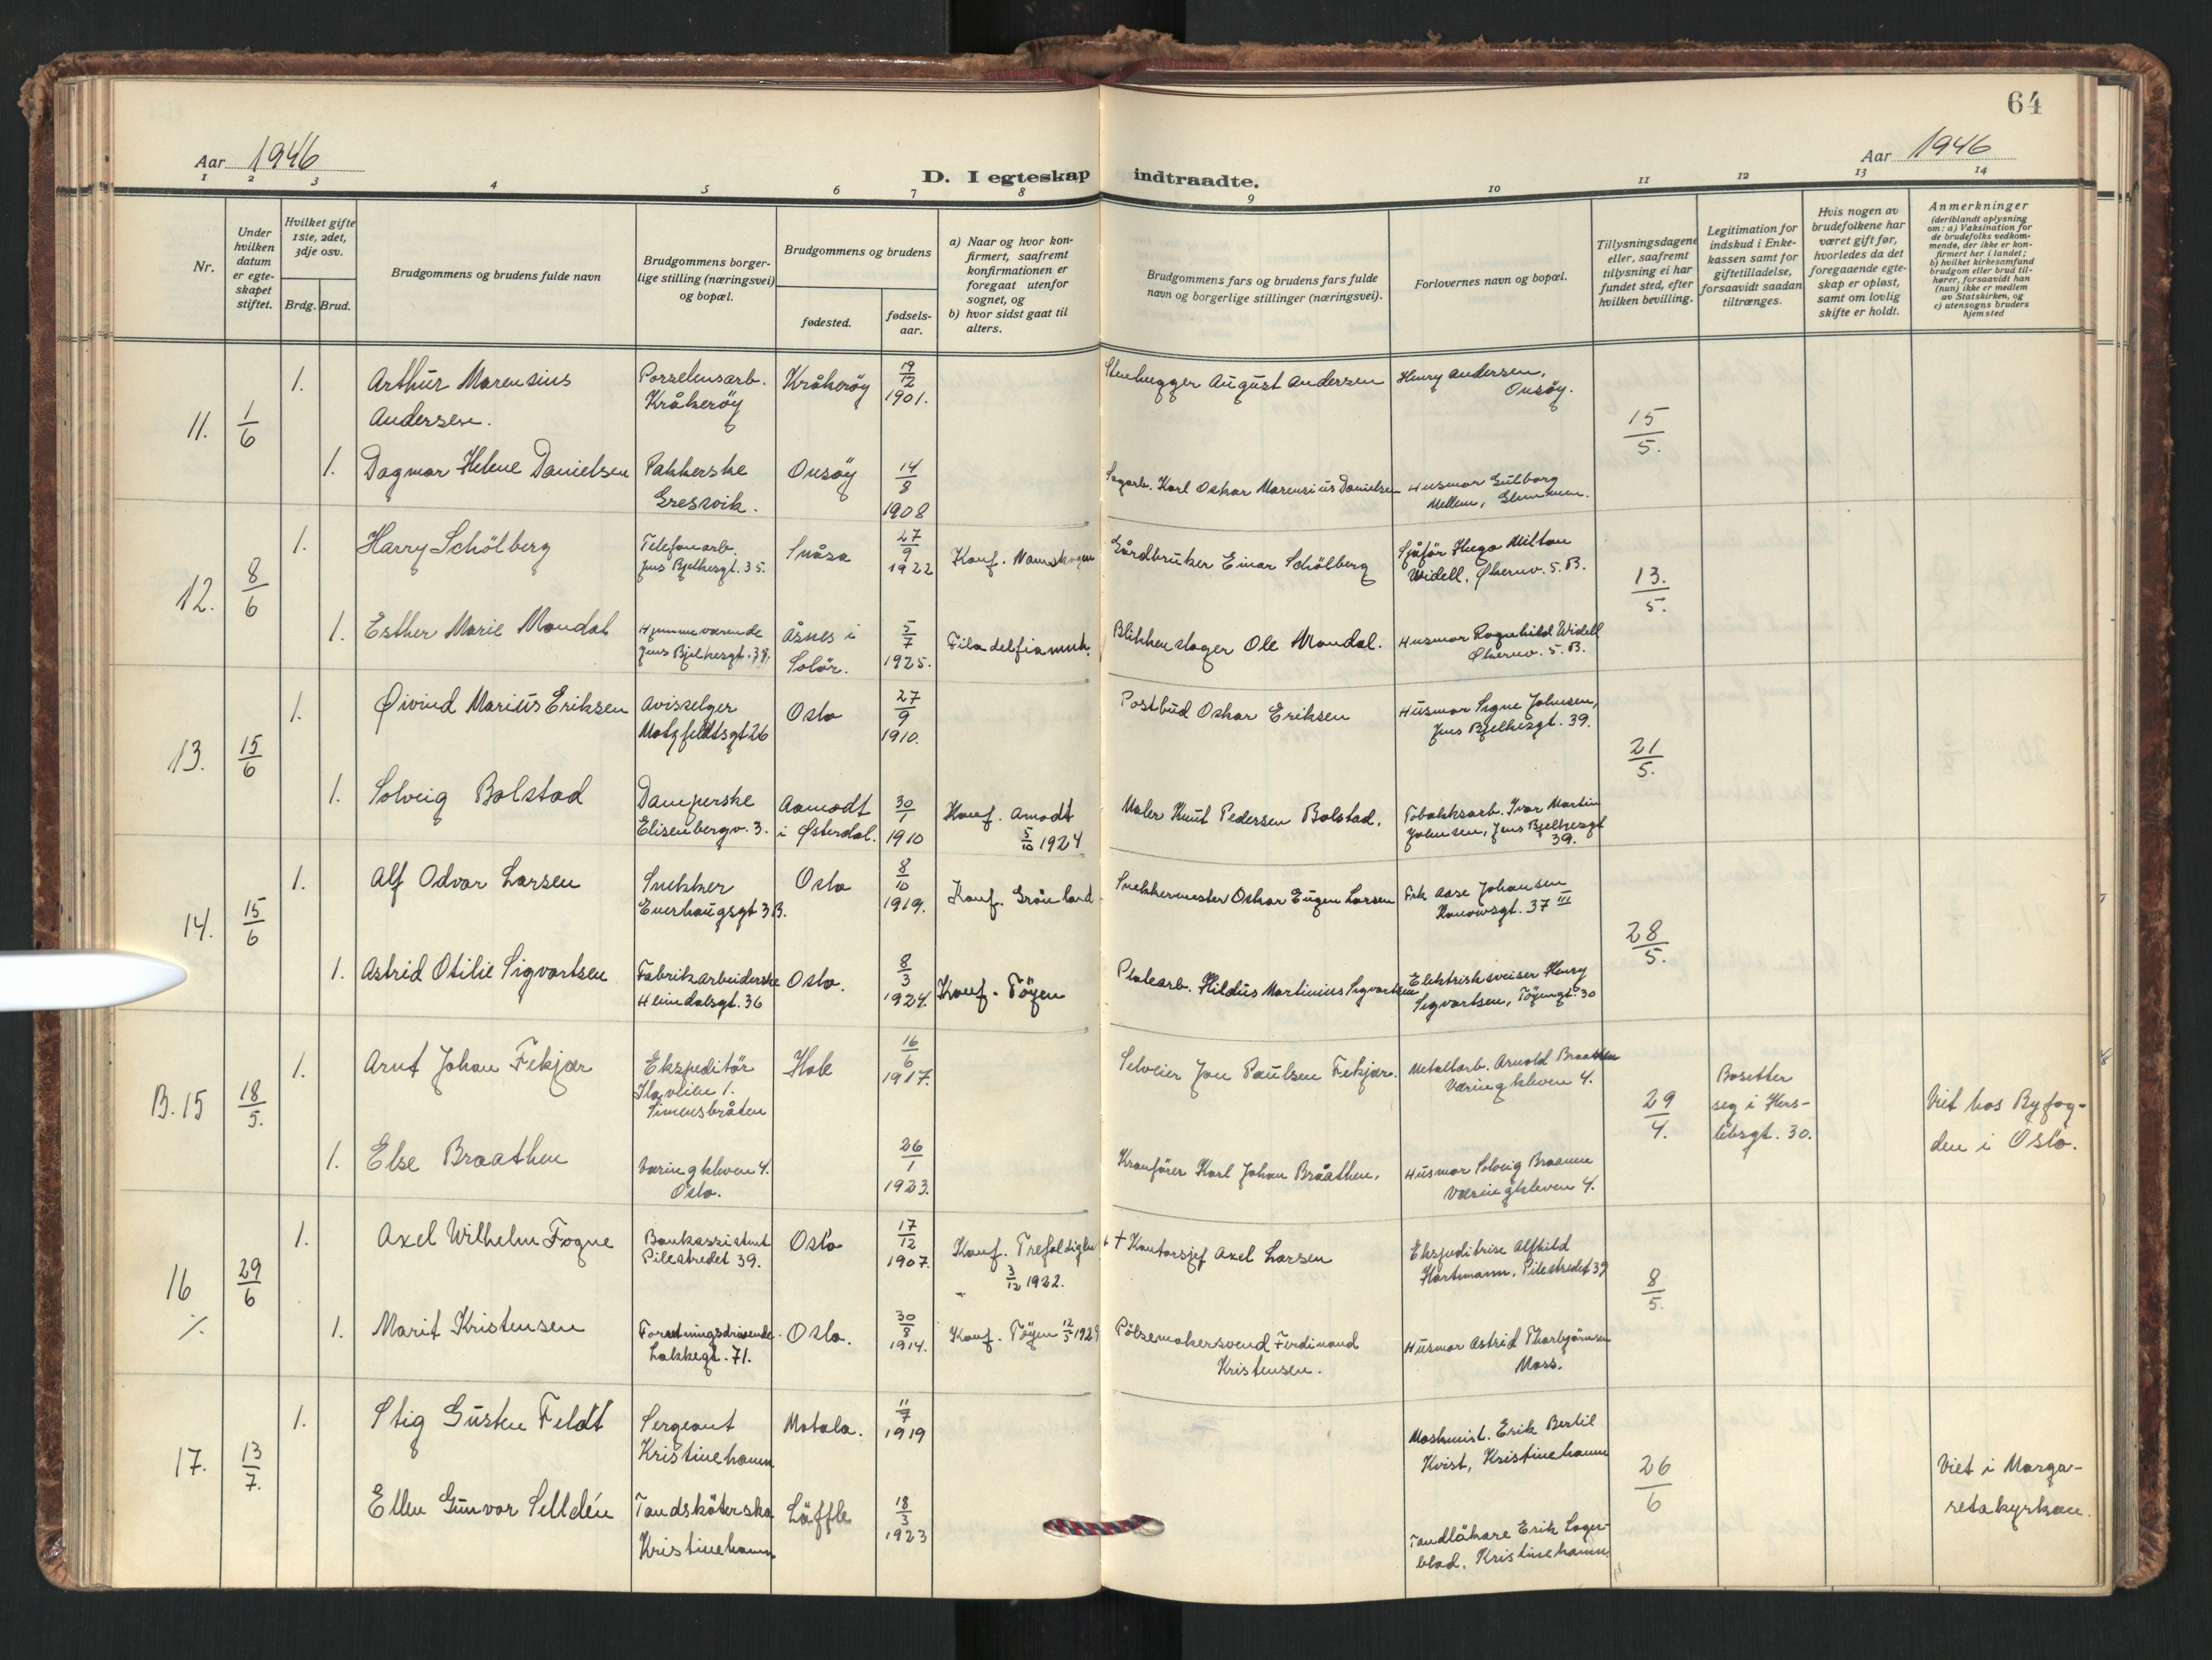 64
Aar 1946
D. I egteskap indtraadte.
Aar 1946
1 2 3 4 5 6 7 8 9 10 11 12 13 14
Nr.
Under hvilken datum er egteskapet stiftet.
Hvilket gifte 1ste, 2det, 3dje osv.
Brdg. Brud.
Brudgommens og brudens fulde navn
Brudgommens borgerlige stilling (næringsvei) og bopæl.
Brudgommens og brudens
fødested.
fødselsaar.
a) Naar og hvor konfirmert, saafremt konfirmationen er foregaat utenfor sognet, og
b) hvor sidst gaat til alters.
Brudgommens fars og brudens fars fulde navn og borgerlige stillinger (næringsvei).
Forlovernes navn og bopæl.
Tillysningsdagene eller, saafremt tillysning ei har fundet sted, efter hvilken bevilling.
Legitimation for indskud i Enkekassen samt for giftetilladelse, forsaavidt saadan tiltrænges.
Hvis nogen av brudefolkene har været gift før, hvorledes da det foregaaende egteskap er opløst, samt om lovlig skifte er holdt.
Anmerkninger
(deriblandt oplysning om: a) Vaksination for de brudefolks vedkommende, der ikke er konfirmert her i landet; b) hvilket kirkesamfund brudgom eller brud tilhører, forsaavidt han (hun) ikke er medlem av Statskirken, og c) utensogns bruders hjemsted
11. 1/6
1. Arthur Marensius Andersen. Porselensarb. Kråkerøy Kråkerøy 19/12 1901. Stenhugger August Andersen Henry Andersen, Onsøy. 15/5.
1. Dagmar Helene Danielsen Pakkerske Gresvik. Onsøy 14/8 1908 Sagarb. Karl Oskar Marensius Danielsen Husmor Gulborg Mellem, Glemmen.
12. 8/6
1. Harry Schölberg Telefonarb. Jens Bjelkesgt. 35. Snåsa 27/9 1922 Konf. Namskogan Gårdbruker Einar Schölberg Sjåför Hugo Milton Widell, Økernv. 5.B. 13./5.
1. Esther Marie Mondal Hjemmeværende Jens Bjelkesgt. 38. Åsnes i Solör. 5/7 1925. Filadelfiamnh. Blikkenslager Ole Mondal. Husmor Ragnhild Widell Økernv. 5.B.
13. 15/6
1. Øivind Marius Eriksen Avisselger Motzfeldtsgt 26 Oslo 27/9 1910. Postbud Oskar Eriksen Husmor Signe Johnsen, Jens Bjelkesgt. 39. 21/5.
1. Solveig Bolstad Damperske Elisenbergv. 3. Aamodt i Østerdal. 30/1 1910 Konf. Amodt 5/10 1924 Maler Knut Pedersen Bolstad. Tobakksarb. Ivar Martin Johnsen, Jens Bjelkesgt 39.
14. 15/6
1. Alf Odvar Larsen Snekker Enerhaugsgt 3B. Oslo 8/10 1919. Konf. Grönland Snekkermester Oskar Eugen Larsen Frk Aase Johansen Konowsgt. 37 III 28/5.
1. Astrid Otilie Sigvartsen Fabrikarbeiderske Heimdalsgt. 36 Oslo. 8/3 1924. Konf. Töyen Platearb. Hildus Martinius Sigvartsen Elektrisksveiser Henry Sigvartsen, Töyengt. 30
B. 15 18/5.
1. Arnt Johan Fekjær Ekspeditör Ilaveien 1. Simensbråten Hole 16/6 1917. Selveier Jon Paulsen Fekjær. Metallarb. Arnold Braathen Væringkleven 4. 29/4. Bosetter seg i Herslebsgt. 30. Viet hos Byfogden i Oslo.
1. Else Braathen Væringkleven 4. Oslo. 26/1 1923. Kranförer Karl Johan Braathen, Husmor Solveig Braanen Væringkleven 4.
16 29/6 ·/.
1. Axel Wilhelm Fogne Bankassistent Pilestredet 39. Oslo 17/12 1907. Konf. Trefoldigh. 3/12 1922. + Kontorsjef Axel Larsen Ekspeditrise Alfhild Hartmann, Pilestredet 39 8/5.
1. Marit Kristensen Forretningsdrivende Lakkegt. 71. Oslo. 30/8 1914. Konf. Töyen 12/5 1929 Pölsemakersvend Ferdinand Kristensen. Husmor Astrid Thorbjörnsen Moss.
17. 13/7.
1. Stig Gusten Feldt Sergeant Kristinehamn Motala. 11/7 1919 Maskinist. Erik Bertil Kvist, Kristinehamn 26/6 Viet i Margaretakyrkan.
Ellen Gunvor Selldén Tandsköterska Kristinehamn Säffle 18/3 1923 Tandläkare Erik Lagerblad. Kristinehamn.